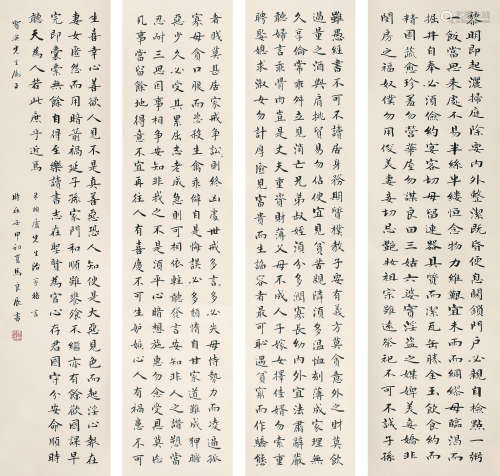 黎明即起灑掃庭除要內外整潔既昏便息關鎖門戶必親自檢點一粥
一飯當思來處不易半絲半縷恒念物力維艱宜未雨而綢繆毋臨渴而
掘井自奉必須儉約宴客切毋留連器具質而潔瓦缶勝金玉飲食約而
精園蔬愈珍饈勿營華屋勿謀良田三姑六婆實淫盜之媒婢美妾嬌非
閨房之福奴僕勿用俊美妻妾切忌艷妝祖宗雖遠祭祀不可不誠子孫
雖愚經書不可不讀居身務期質樸教子要有義方莫貪意外之財莫飲
過量之酒與肩挑貿易勿佔便宜見貧苦親鄰須多溫恤刻薄成家理無
久享倫常乖舛立見消亡兄弟叔姪須分多潤寡長幼內外宜法肅辭嚴
聽婦言乖骨肉豈是丈夫重資財薄父母不成人子嫁女擇佳婿勿索重
聘娶媳求淑女勿計厚奩見富貴而生諂容者最可恥遇貧窮而作驕態
者賤莫甚居家戒爭訟訟則終凶處世戒多言言多必失毋恃勢力而凌逼孤
寡毋貪口腹而恣殺生禽乖僻自是悔誤必多頹惰自甘家道難成狎暱
惡少久必受其累屈志老成急則可相依輕聽發言安知非人之譖愬當
忍耐三思因事相爭安知非我之不是須平心暗想施惠無念受恩莫忘
凡事當留餘地得意不宜再往人有喜慶不可生妒嫉心人有禍患不可
生喜幸心善欲人見不是真善惡恐人知便是大惡見色而起淫心報在
妻女匿怨而用暗箭禍延子孫家門和順雖饔飧不繼亦有餘歡國課早
完即囊橐無餘自得至樂讀書志在聖賢爲官心存君國守分安命順時
聽天爲人若此庶乎近焉
朱柏廬先生治家格言
先生屬
時在壬申初夏馬書